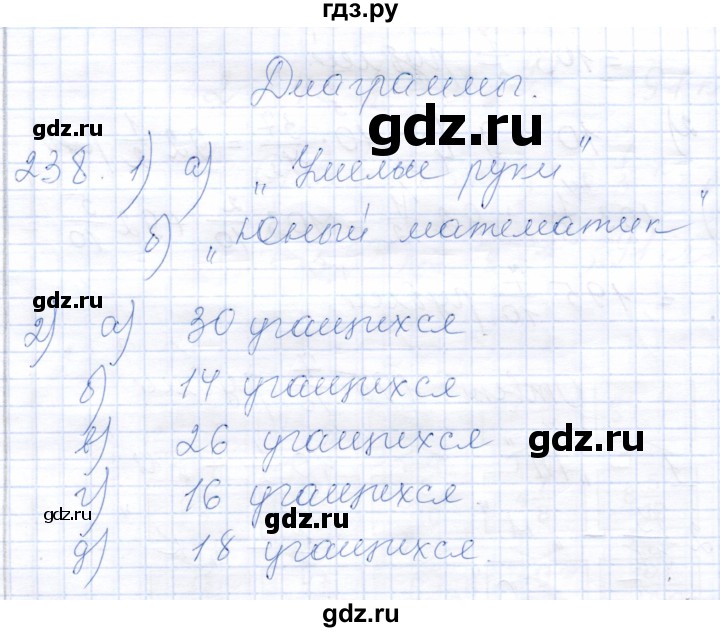 гдз.ру
Диаграммы.
gdz.ru
gdz.ru
238. 1) а) „Умелые руки"
б) „Юный математик"
gdz.ru
2) а) 30 учащихся.
б) 14 учащихся
в) 26 учащихся
gdz.ru
г) 16 учащихся.
gdz.ru
gdz.ru
д) 18 учащихся.
gdz.ru